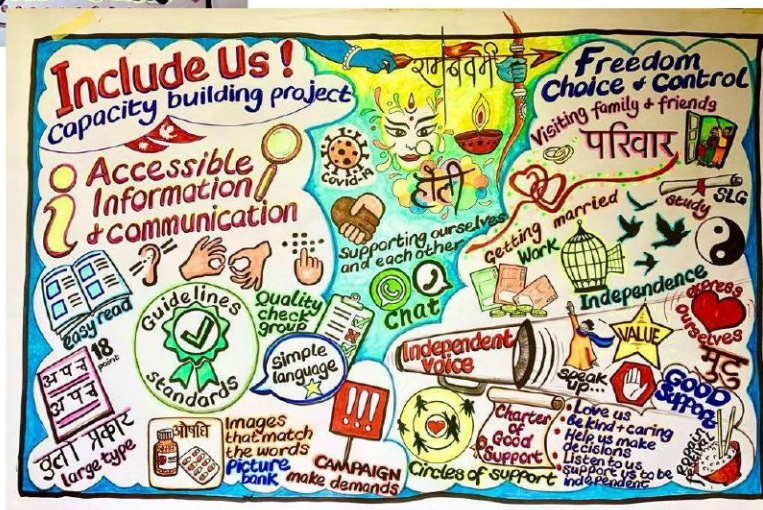 Include Us!
Capacity building project
Accessible
Information
& communication
easy read
Guidelines
Standards
Quality
check
group
Simple
language
18
point
अ प च
अ प च
ठुलो प्रकार
large type
औषधि
Images
that match
the words
Picture
bank
!!!
CAMPAIGN
make demands
राम नवमी
covid-19
होली
Supporting ourselves
and each other
Chat
Freedom
Choice & Control
Visiting family & friends
परिवार
Getting married
study
SLC
Work
Independence
express
ourselves
मुटु
Independent
Voice
speak
up...
VALUE
GOOD
Support
Circles of support
Charter
of Good
Support
• Love us
• Be kind + caring
• Help us make
decisions
• Listen to us
• support us to be
independent